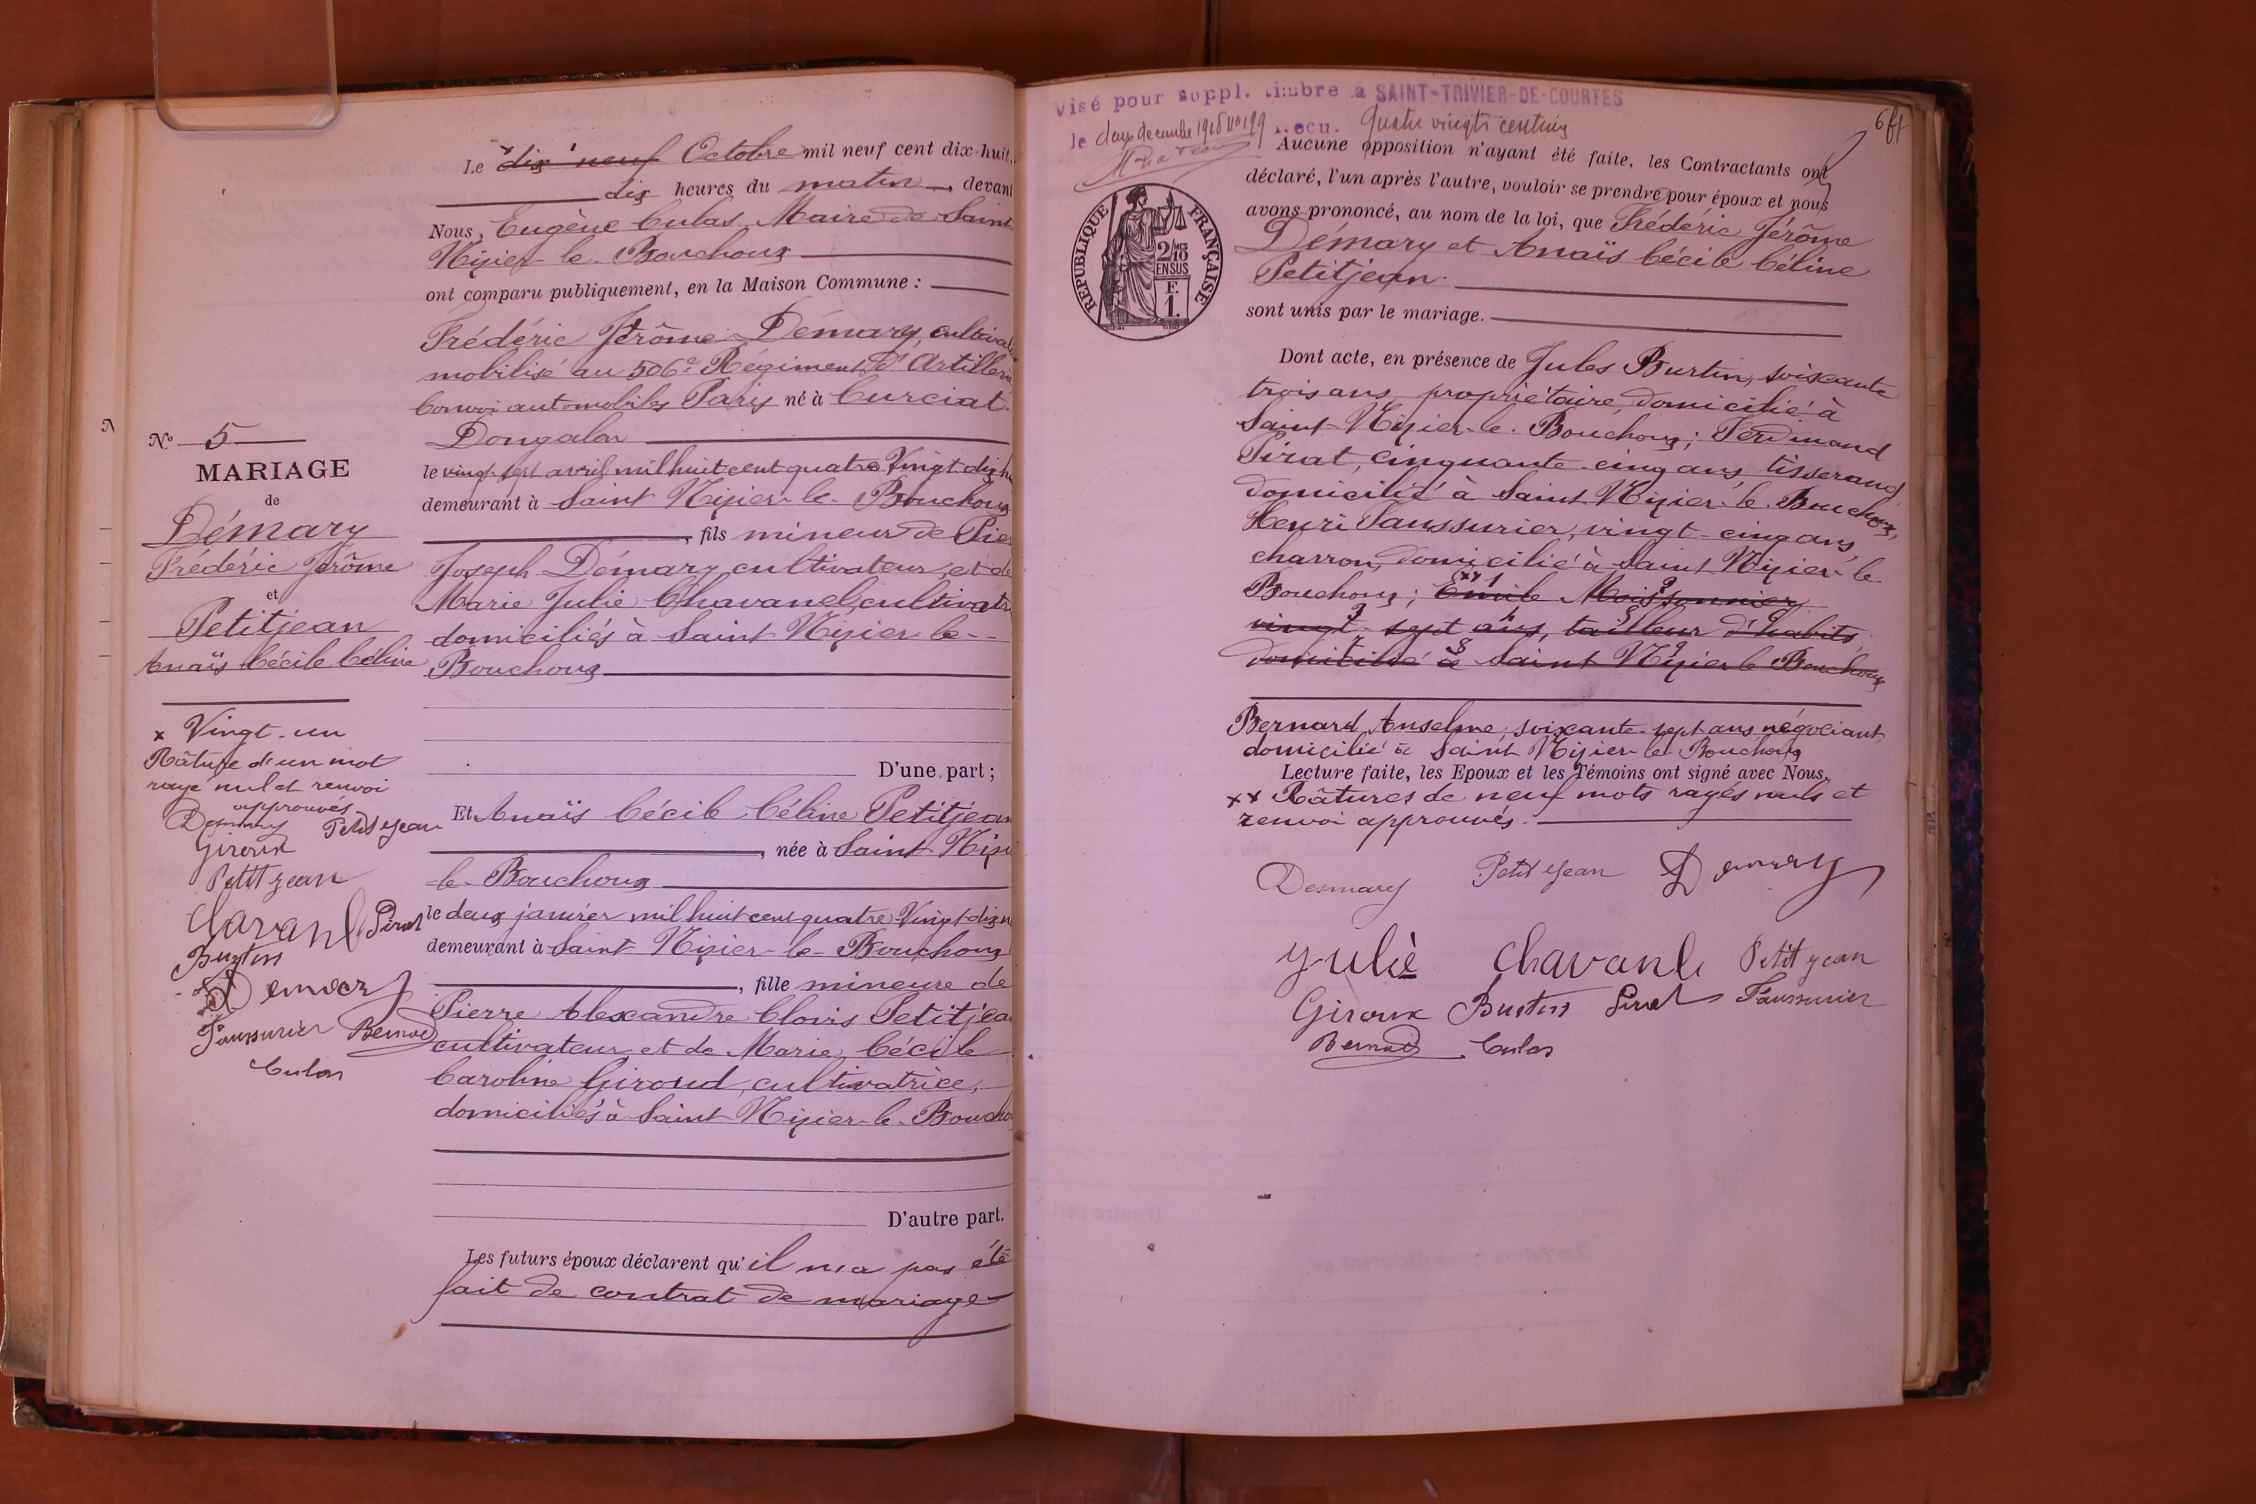 Le dix neuf Octobre mil neuf cent dix-huit,
dix heures du matin, devant
Nous, Eugène Culas, Maire de Saint
Nizier-le-Bouchoux
ont comparu publiquement, en la Maison Commune :
Frédéric Jérôme Démary, cultiva
mobilisé au 506e Régiment d'Artillerie
Convoi automobiles Paris né à Curciat
Dongalon
le vingt sept avril mil huit cent quatre Vingt dix
demeurant à Saint Nizier-le-Bouchoux
, fils mineur de Pie
Joseph Démary cultivateur, et de
Marie Julie Chavanel, cultivat
domiciliés à Saint Nizier le-
Bouchoux
D'une part ;
Et Anaïs Cécile Céline Petitjean
, née à Saint Nizi
-le-Bouchoux
le deux janvier mil huit cent quatre Vingt dix
demeurant à Saint Nizier-le-Bouchoux
, fille mineure de
Pierre Alexandre Clovis Petitjea
cultivateur et de Marie Cécile
Caroline Giroud, cultivatrice,
domiciliés à Saint Nizier-le-Boucho
D'autre part.
Les futurs époux déclarent qu'il n'a pas été
fait de contrat de mariage
No 5
MARIAGE
de
Démary
Frédéric Jérôme
et
Petitjean
Anaïs Cécile Céline
x Vingt-un
Râture d'un mot
rayé nul et renvoi
approuvés
Desmary Petitjean
Giroux
Petitjean
Chavanel Pirat
Burtin
Demary
Faussurier Bernard
Culas
Visé pour suppl. timbre a SAINT-TRIVIER-DE-COURTES
le deux decembre 1918 No 199 Recu. Quatre vingts centimes
RÉPUBLIQUE FRANÇAISE
2/10
EN SUS
F.
1.
Aucune opposition n'ayant été faite, les Contractants ont
déclaré, l'un après l'autre, vouloir se prendre pour époux et nous
avons prononcé, au nom de la loi, que Frédéric Jérôme
Démary et Anaïs Cécile Céline
Petitjean
sont unis par le mariage.
Dont acte, en présence de Jules Burtin, soixante
trois ans, propriétaire, domicilié à
Saint-Nizier-le-Bouchoux ; Ferdinand
Pirat, cinquante-cinq ans, tisserand
domicilié à Saint Nizier-le-Bouchoux,
Henri Faussurier, vingt-cinq ans,
charron, domicilié à Saint Nizier-le-
Bouchoux ; Emile Moissonnier
vingt-sept ans, tailleur d'habits,
domicilié à Saint Nizier le Bouchoux
Bernard Anselme, soixante-sept ans négociant
domicilié à Saint Nizier-le-Bouchoux
Lecture faite, les Epoux et les Témoins ont signé avec Nous.
xx Râtures de neuf mots rayés nuls et
renvoi approuvés.
Desmary Petitjean Demary
Julie Chavanel Petitjean
Giroux Burtin Pirat Faussurier
Bernard Culas